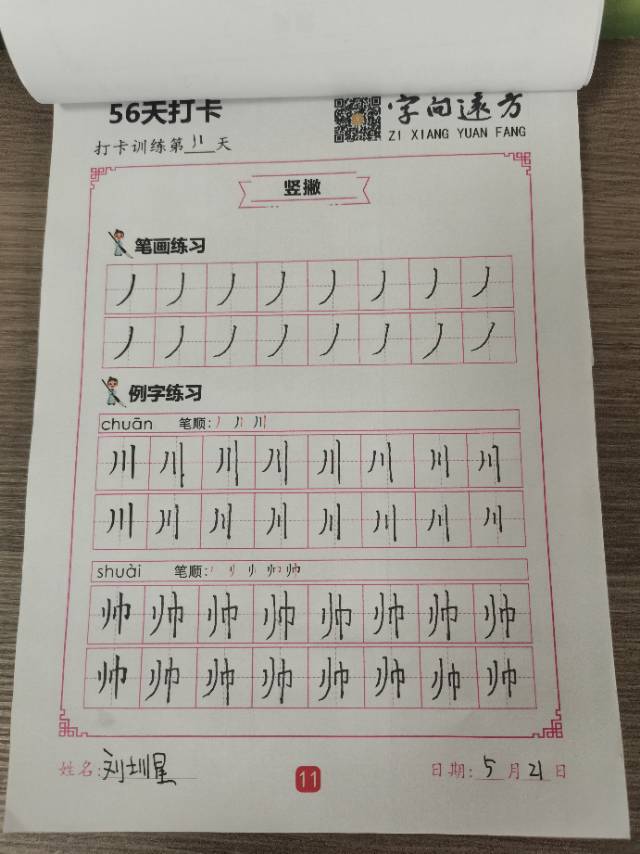 56天打卡
字向远方
ZI XIANG YUAN FANG
打卡训练第11天
竖撇
笔画练习
丿丿丿丿丿丿丿丿
丿丿丿丿丿丿丿丿
例字练习
chuān 笔顺:
川川川川川川川川
川川川川川川川川
shuài 笔顺:
帅帅帅帅帅帅帅帅
帅帅帅帅帅帅帅帅
姓名:刘圳星
11
日期:5月21日